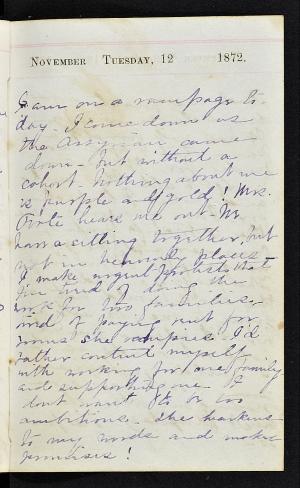 November Tuesday, 12 1872.
I am on a rampage to-
day. I come down as
the Assyrian came
down - but without a
cohort. Nothing about me
is purple and gold! Mrs.
hears me out. We
have a sitting together, but
not in heavenly places
I make urgent protests that
I'm tired of doing the
work for two families.
tired of paying out for
rooms she occupies. I'd
rather content myself
with working for one family
and supporting one. I
dont want to be too
ambitious. She hearkens
to my words and makes
promises!